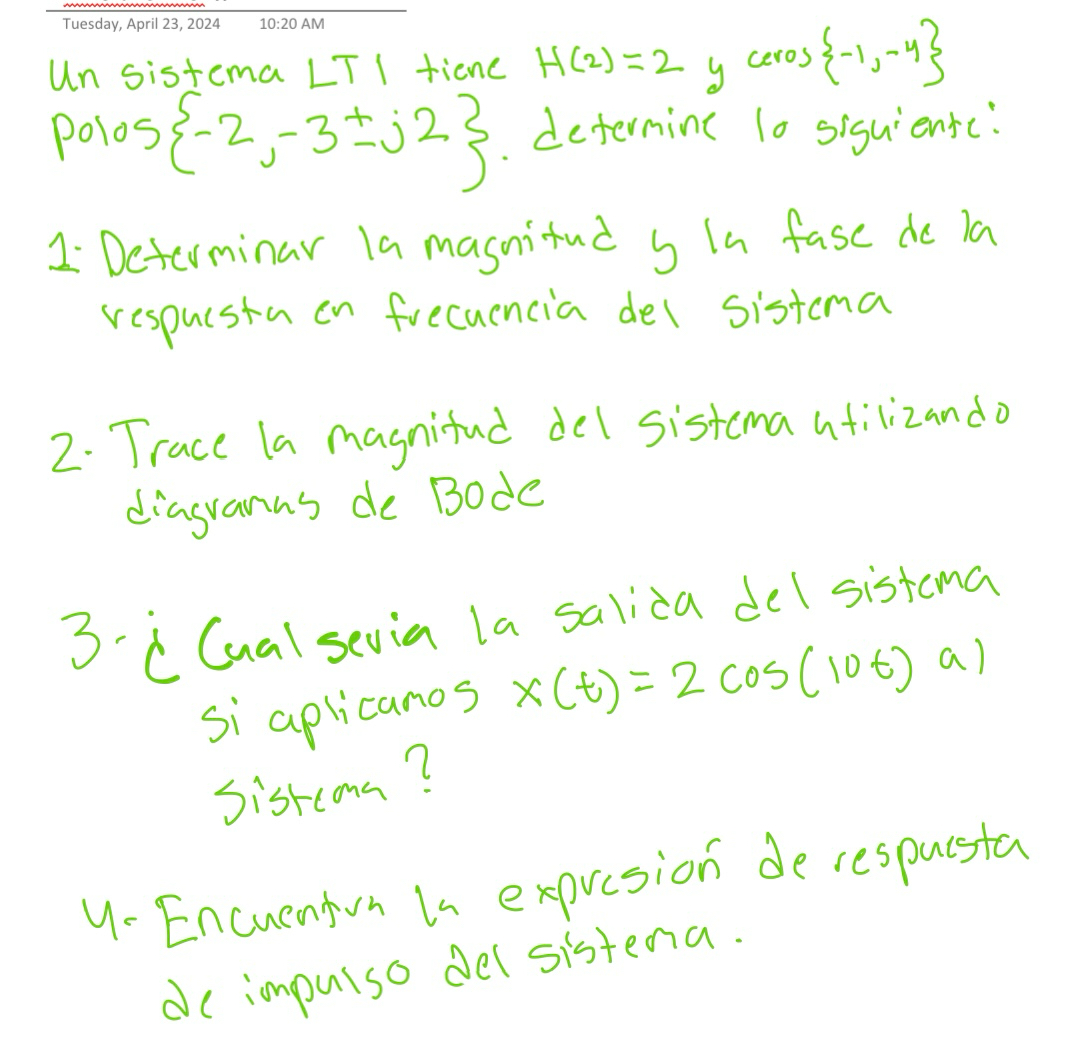 Tuesday, April 23, 2024 10:20 AM
Un sistema LTI tiene H(2)=2 y ceros{-1,-4}
Polos{-2,-3±j2}. determine lo siguiente:
1- Determinar la magnitud y la fase de la
respuesta en frecuencia del sistema
2- Trace la magnitud del sistema utilizando
diagramas de Bode
3- ¿Cual seria la salida del sistema
si aplicamos x(t)=2 cos(10t) al
sistema?
4- Encuentra la expresión de respuesta
de impulso del sistema.